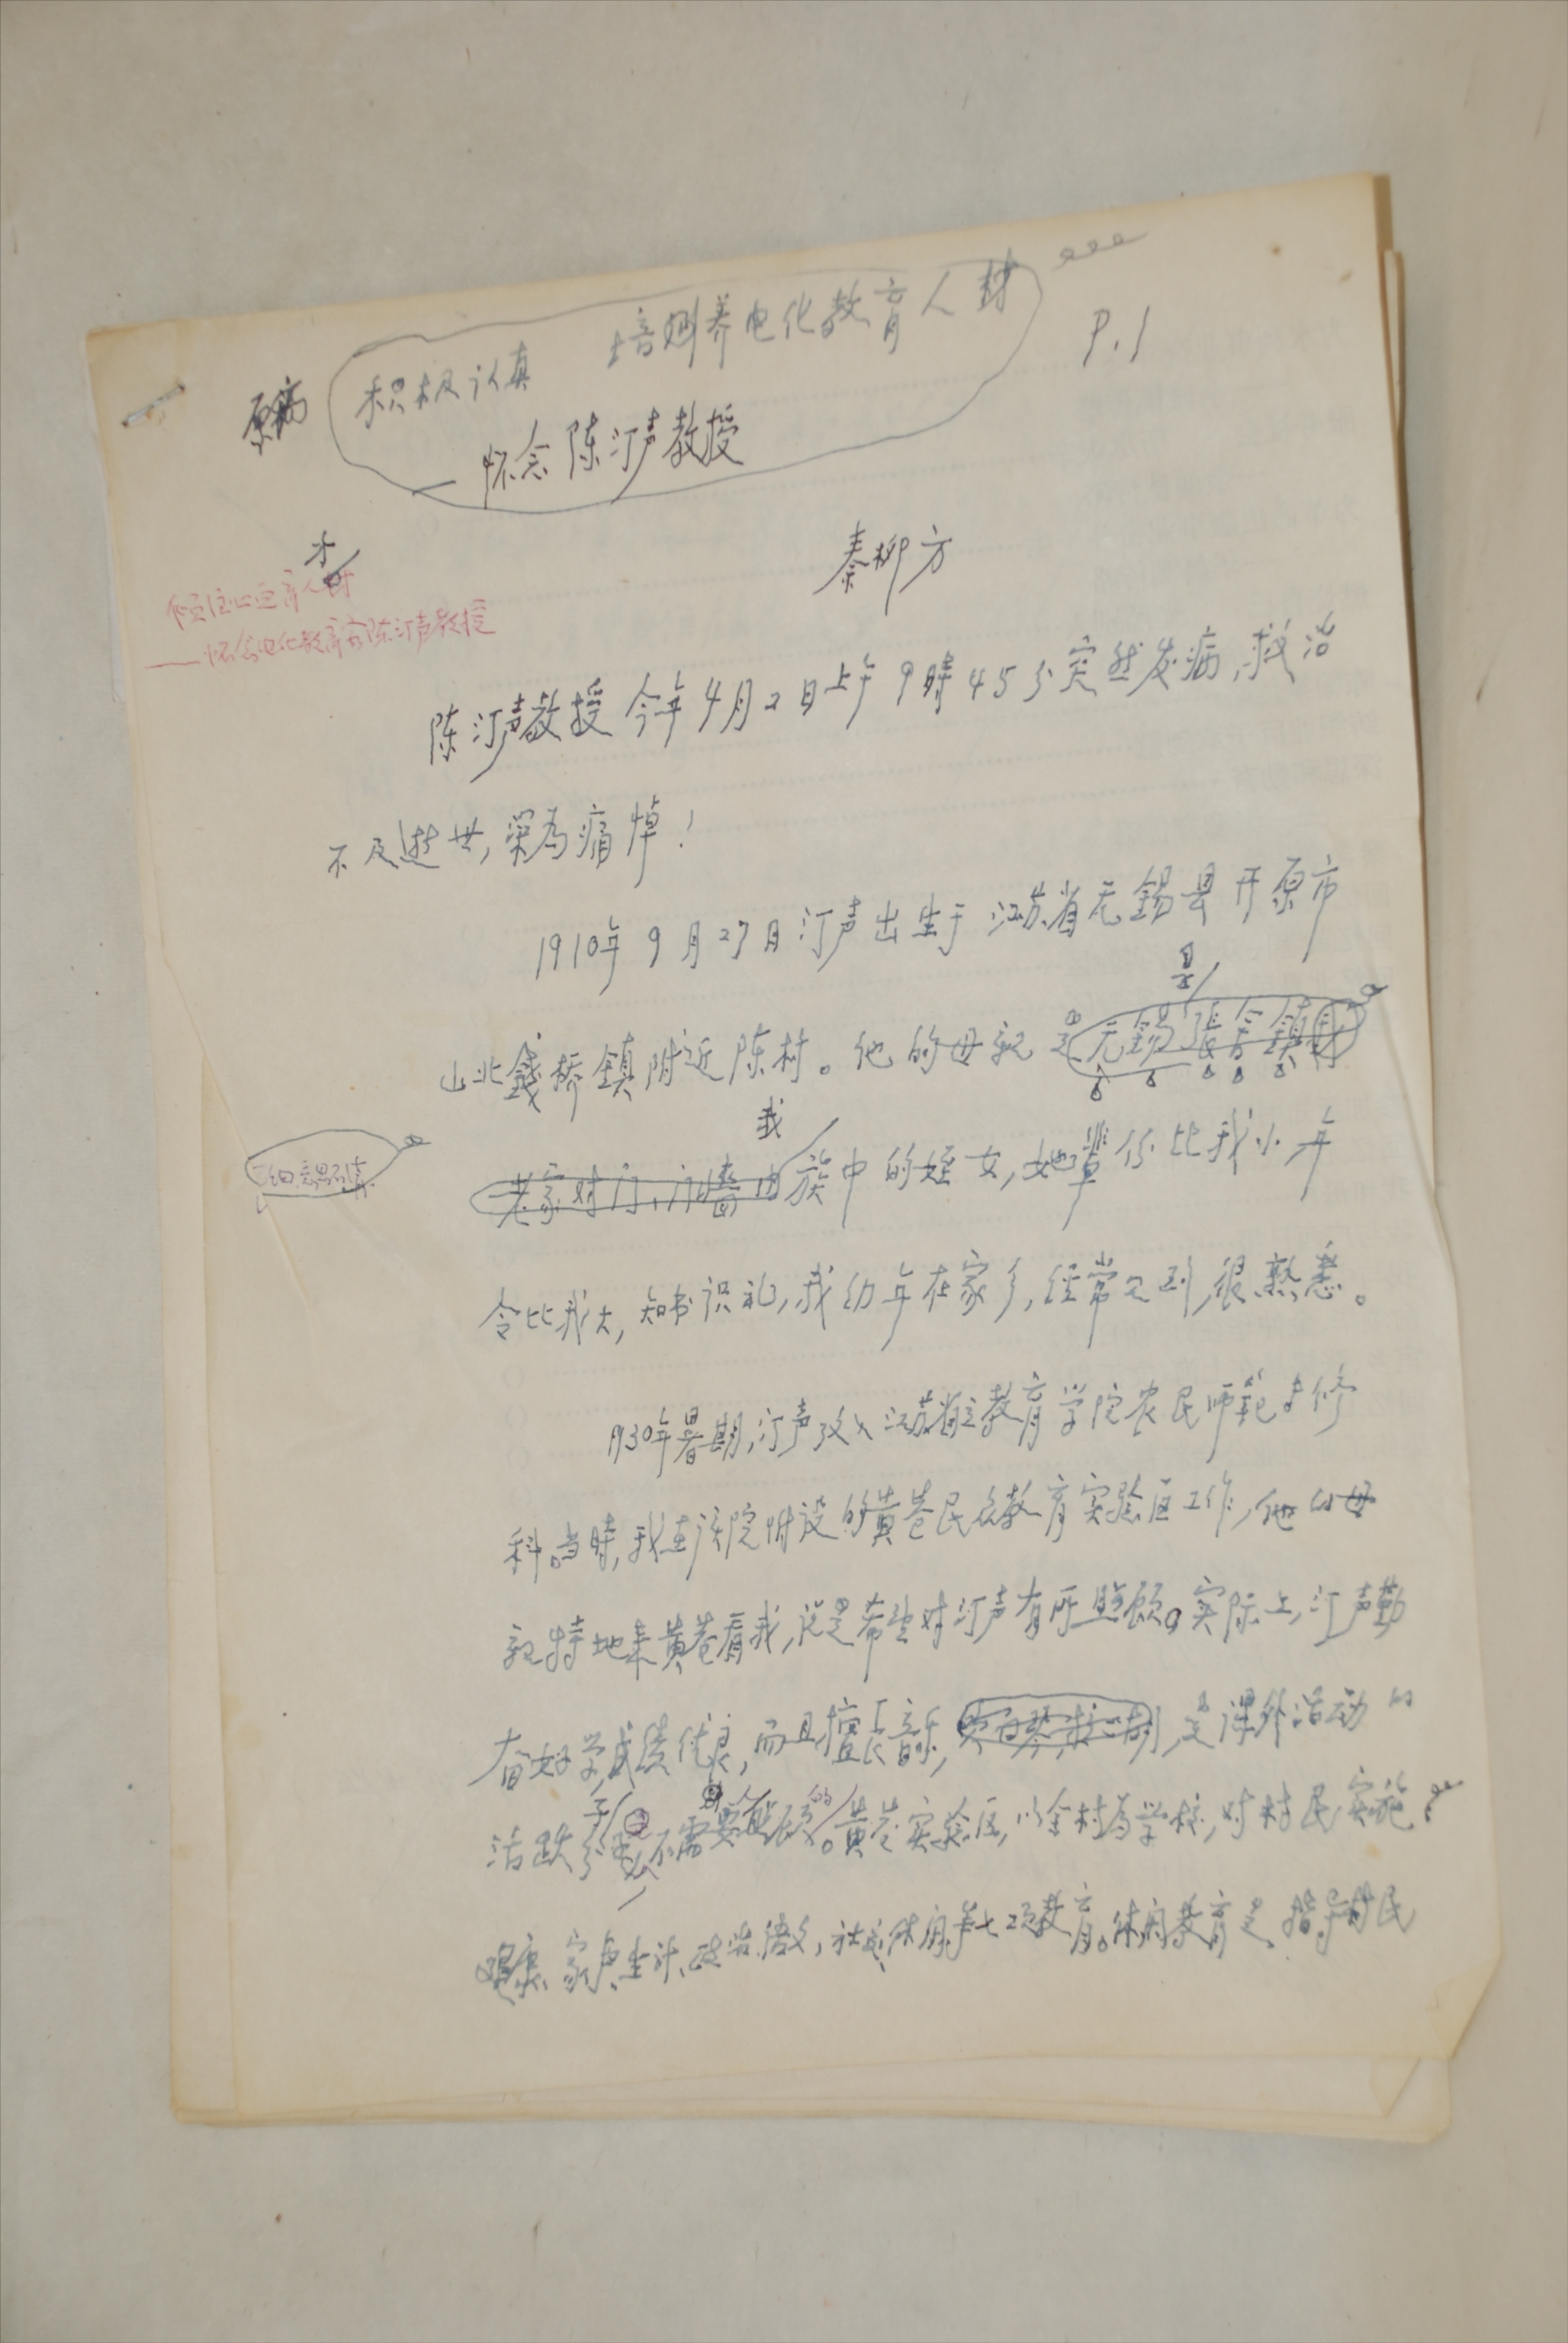 P.1
积极认真 培训养电化教育人材
原稿
——怀念陈汀声教授
秦柳方
才
倾注心血育人材
——怀念电化教育家陈汀声教授
陈汀声教授今年4月2日上午9時45分突然发病,救治
不及逝世,深为痛悼!
1910年9月27日汀声出生于江苏省无錫县开原市
是
山北錢桥鎮附近陈村。他的母亲是无錫張舍鎮
我
老家对门、门墙内族中的姪女,她輩份比我小年
令比我大,知书识礼,我幼年在家乡,经常见到,很熟悉。
1930年暑期,汀声考入江苏省立教育学院农民师範专修
科。当時,我在该院附设的黄巷民众教育实验区工作,他的母
亲特地来黄巷看我,说是希望对汀声有所照顾。实际上,汀声勤
奋好学,成绩优良,而且擅长音乐,是课外活动的
活跃分子,不需要照顾的。黄巷实验区,以全村为学校,对村民实施
健康、家庭、生计、政治、语文,社交、休闲等七项教育。休闲教育是指导村民